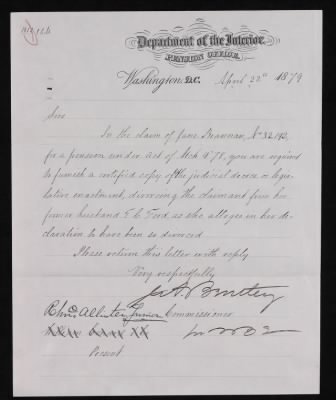 Department of the Interior,
PENSION OFFICE,
Washington, D.C. April 22d 1879
Sir:
In the claim of Jane
for a pension under Act of Mch 9" 78, you are required
to furnish a certified copy of the judicial decree or legis-
lative enactment, divorcing the claimant from her
former husband E. C. Ford, as she alleges in her de-
claration to have been so divorced.
Please return this letter with reply
Very respectfully
J. A. Bentley
Commissioner
Present